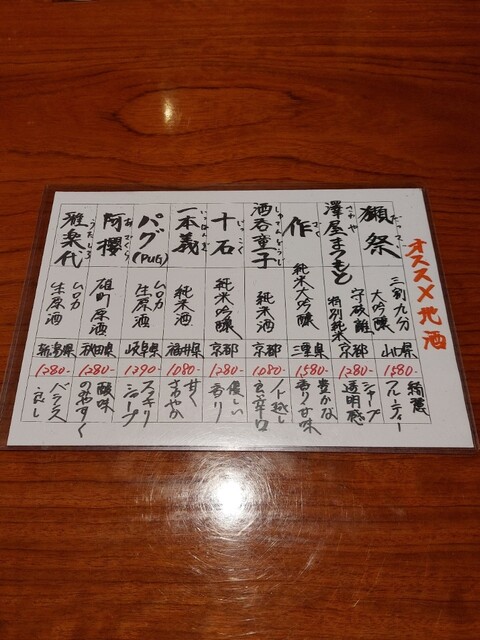 オススメ地酒
獺祭
だっさい
三割九分
大吟醸
山口県
1580-
綺麗
フルーティー
澤屋まつもと
さわや
守破離
特別純米
京都
1280-
シャープ
透明感
作
ざく
純米大吟醸
三重県
1580-
豊かな
香り甘味
酒呑童子
しゅてんどうじ
純米酒
京都
1080-
ノド越し
良い辛口
十石
じゅっこく
純米吟醸
京都
1280-
優しい
香り
一本義
いっぽんぎ
純米酒
福井県
1080-
甘く
さわやか
パグ
(PUG)
ムロカ
生原酒
岐阜県
1390-
スッキリ
シャープ
阿櫻
あざくら
雄町原酒
秋田県
1280-
酸味
のみやすく
雅楽代
うたしろ
ムロカ
生原酒
新潟県
1280-
バランス
良し